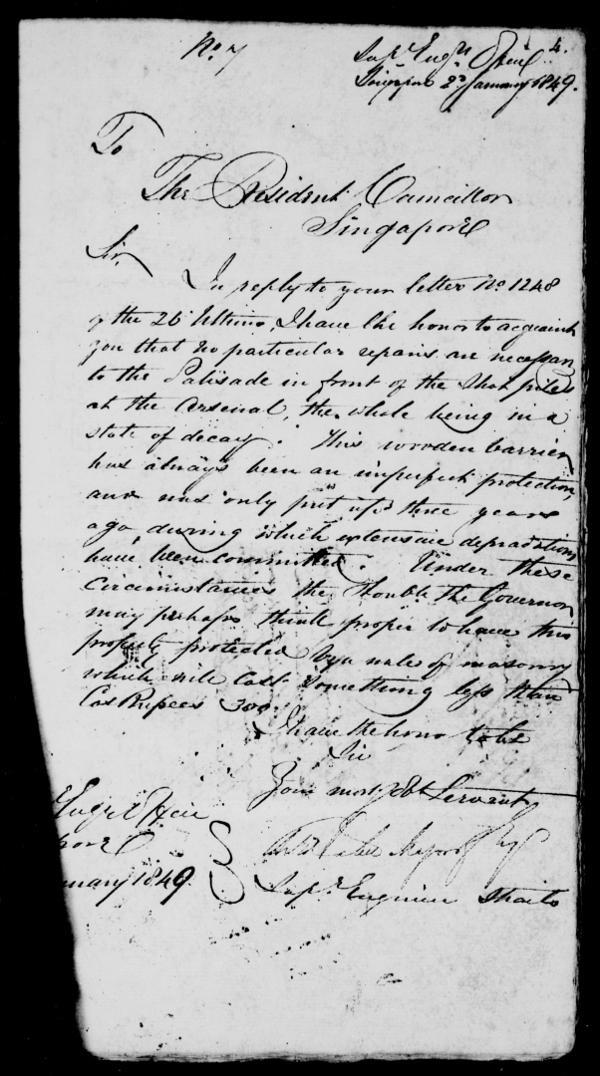 No. 7
4.
Supg Engrs Office
Singapore 2d January 1849.
To
The Resident Councillor
Singapore
Sir,
In reply to your letter No. 1248
of the 26 Ultimo, I have the honor to acquaint
you that no particular repairs are necessary
to the Palisade in front of the Shot piles
at the Arsenal, the whole being in a
state of decay. This wooden barrier
has always been an imperfect protection,
and was only put up three years
ago, during which extensive depradations
have been committed. Under these
Circumstances the Honble the Governor
may perhaps think proper to have this
property protected by a wall of masonry
which will cost something less than
Cos Rupees 300.
I have the honor to be
Sir
Your most Obt Servant
Major
Supg Engineer Straits
Engrs Office
pore
nuary 1849.